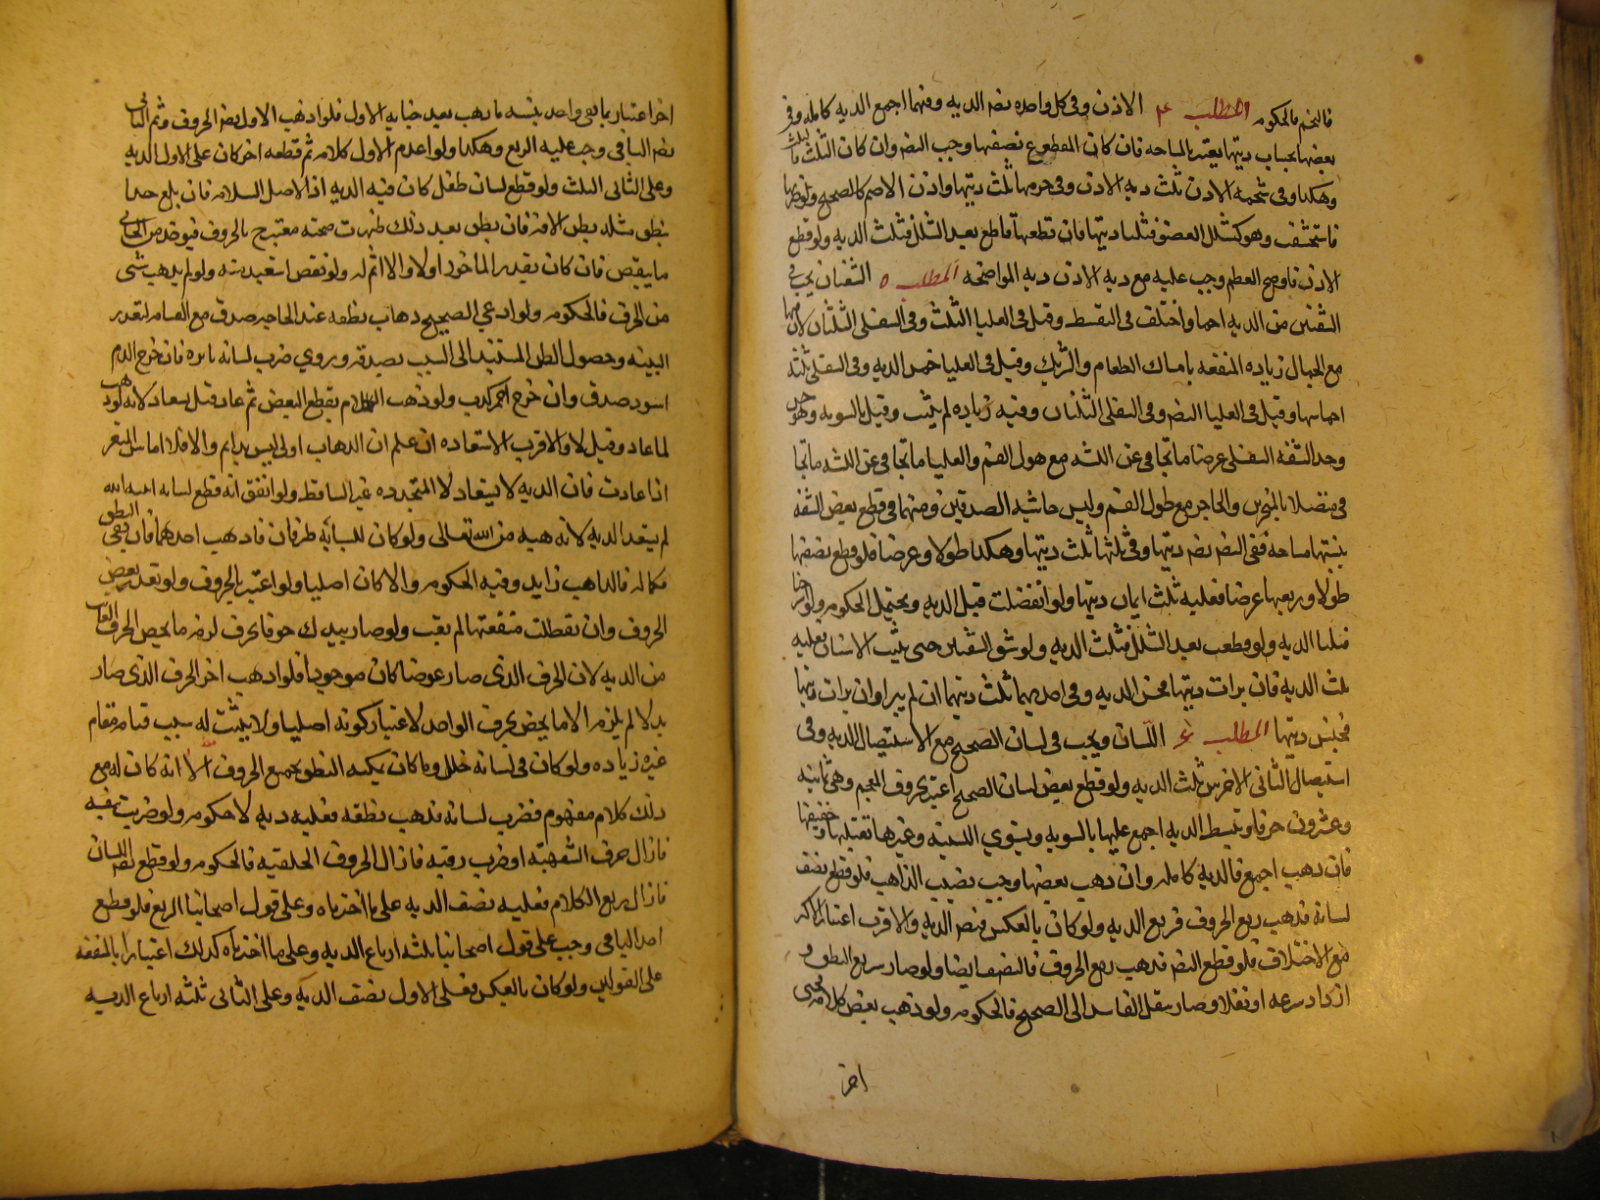 فالتخم فالحكومه المطلب ٤ الاذن وفي كل واحده نصف الديه وفيهما اجمع الديه كامله وفي
بعضها بحساب ديتها يعتبر بالمساحه فان كان المقطوع نصفها وجب النصف وان كان الثلث فالثلث
وهكذا وفي شحمه الاذن ثلث ديه الاذن وفي خرمها ثلث ديتها واذن الاصم كالصحيح ولو ضربها
فاستحشفت وهو كشلل العضو فثلثا ديتها فان قطعها قاطع بعد الشلل فثلث الديه ولو قطع
الاذن فاوضح العظم وجب عليه مع ديه الاذن ديه الموضحه المطلب ٥ الشفتان يجب في
الشفتين من الديه اجماعا واختلف في التقسط وقيل في العليا الثلث وفي السفلى الثلثان لان فيها
مع الجمال زياده المنفعه بامساك الطعام والريق وقيل في العليا خمسا الديه وفي السفلى ثلثه
اخماسها وقيل في العليا النصف وفي السفلى الثلثان وفيه زياده لم يثبت وقيل بالسويه وهو حسن
وحد الشفه السفلى عرضا ما تجافى عن اللثه مع طول الفم والعليا ما تجافى عن اللثه
متصلا بالمنخرين والحاجز مع طول الفم وليس حاشيه الصدقين ومنهما في قطع بعض الشفه
بنسبتها مساحه ففي النصف نصف ديتها وفي ثلثها ثلث ديتها وهكذا طولا وعرضا فلو قطع نصفها
طولا وربعها عرضا فعليه ثلث اثمان ديتها ولو انفصلت قيل الديه ويحتمل الحكومه ولو استرختا
فثلثا الديه ولو قطعت بعد الشلل فثلث الديه ولو شق الشفتين حتى يثبت الاسنان فعليه
ثلث الديه فان برات ديتها فخمس الديه وفي احديهما ثلث ديتها ان لم يبرا وان برات
فخمس ديتها المطلب ٦ اللسان ويجب في لسان الصحيح مع الاستيصال الديه وفي
استيصال الثاني الاخرس ثلث الديه ولو قطع بعض لسان الصحيح اعتبر بحروف المعجم وهي ثمانيه
وعشرون حرفا وتبسط الديه اجمع عليها بالسويه ويستوي اللسنيه وغيرها ثقيلها وخفيفها
فان ذهب اجمع فالديه كامله وان ذهب بعضها وجب نصيب الذاهب فلو قطع نصف
لسانه فذهب ربع الحروف فربع الديه ولو كان بالعكس فنصف الديه والاقرب اعتبار الاكثر
مع الاختلاف فلو قطع النصف فذهب ربع الحروف فالنصف ايضا ولو صار سريع النطق و
ازداد سرعه او ثقلا وصار ينقل الفاسد الى الصحيح فالحكومه ولو ذهب بعض كلامه فجنى
اخر
اخر اعتبار بما بقي واخذ بنسبه ما ذهب بعد جنايه الاول فلو اذهب الاول نصف الحروف ثم الثاني
نصف الباقي وجب عليه الربع وهكذا ولو اعدم الاول كلامه ثم قطعه اخر كان على الاول الديه
وعلى الثاني الثلث ولو قطع لسان طفل كان فيه الديه اذ الاصل السلامه فان بلغ حدا
ينطق مثله نطق الا فان نطق بعد ذلك ظهرت صحته معتبرة بالحروف فيؤخذ من الجاني
ما ينقص فان كان بقدر الماخوذ اولا والا اتم له ولو نقص استعيد منه ولو لم يذهب شي
من الحرف فالحكومه ولو ادعى الصحيح ذهاب نطقه عند الجنايه صدق مع القسامه لتعذر
البينه وحصول الظن المستند الى السبب بصدقه وروي ضرب لسانه بابره فان خرج الدم
اسود صدق وان خرج احمر كذب ولو ذهب الكلام بقطع البعض ثم عاد قيل يستعاد لانه لو ذهب
لما عاد وقيل لا والاقرب الاستعاده ان علم ان الذهاب اولا ليس بدايم والا فلا اما سن المثغر
اذا عادت فان الديه لا يستعاد لان المتجدده غير الساقطه ولو اتفق انه قطع لسانه انبته الله
لم يستعد الديه لانه هبه من الله تعالى ولو كان للسانه طرفان فاذهب احدهما فان بقي النطق
بكماله فالذاهب زايد وفيه الحكومه والا كان اصليا ولو اعتبر بالحروف ولو تعذر بعض
الحروف وان تعطلت منفعتها لم يعب ولو صار يبدل حرفا بحرف لزمه ما يخص الحرف الفايت
من الديه لان الحرف الذي صار عوضا كان موجودا فلو اذهب اخر الحرف الذي صار
بدلا لم يلزم الا ما يخص بحرف الواحد لاعتبار كونه اصليا ولا يثبت له سبب قيامه مقام
غيره زياده ولو كان في لسانه خلل وما كان يمكنه النطق بجميع الحروف الا انه كان له مع
ذلك كلام مفهوم فضرب لسانه فذهب نطقه فعليه ديه لا حكومه ولو ضرب شفته
فازال حرف الشفهيه او ضرب رقبه فازال الحروف الحلقيه فالحكومه ولو قطع نصف اللسان
فازال ربع الكلام فعليه نصف الديه على ما اخترناه وعلى قول اصحابنا الربع فلو قطع
اخر الباقي وجب على قول اصحابنا ثلثه ارباع الديه وعلى ما اخترناه كذلك اعتبارا بالمنفعه
على القولين ولو كان بالعكس فعلى الاول نصف الديه وعلى الثاني ثلثه ارباع الديه